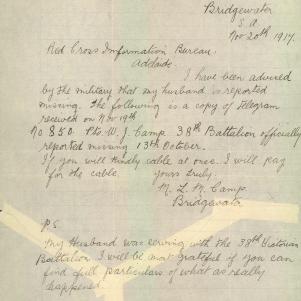 Bridgewater
S.A.
Nov 20th 1917.
Red Cross Information Bureau.
Adelaide.
I have been advised
by the military that my husband is reported
missing. The following is a copy of telegram
received on Nov 19th
No 850. Pte W. J. Camp 38th Battalion officially
reported missing 13th October.
If you will kindly cable at once. I will pay
for the cable. Yours truly.
M. L. M. Camp.
Bridgewater
P.S
My Husband was serving with the 38th Victorian
Battalion I will be most grateful if you can
find full particulars of what as really
happened.